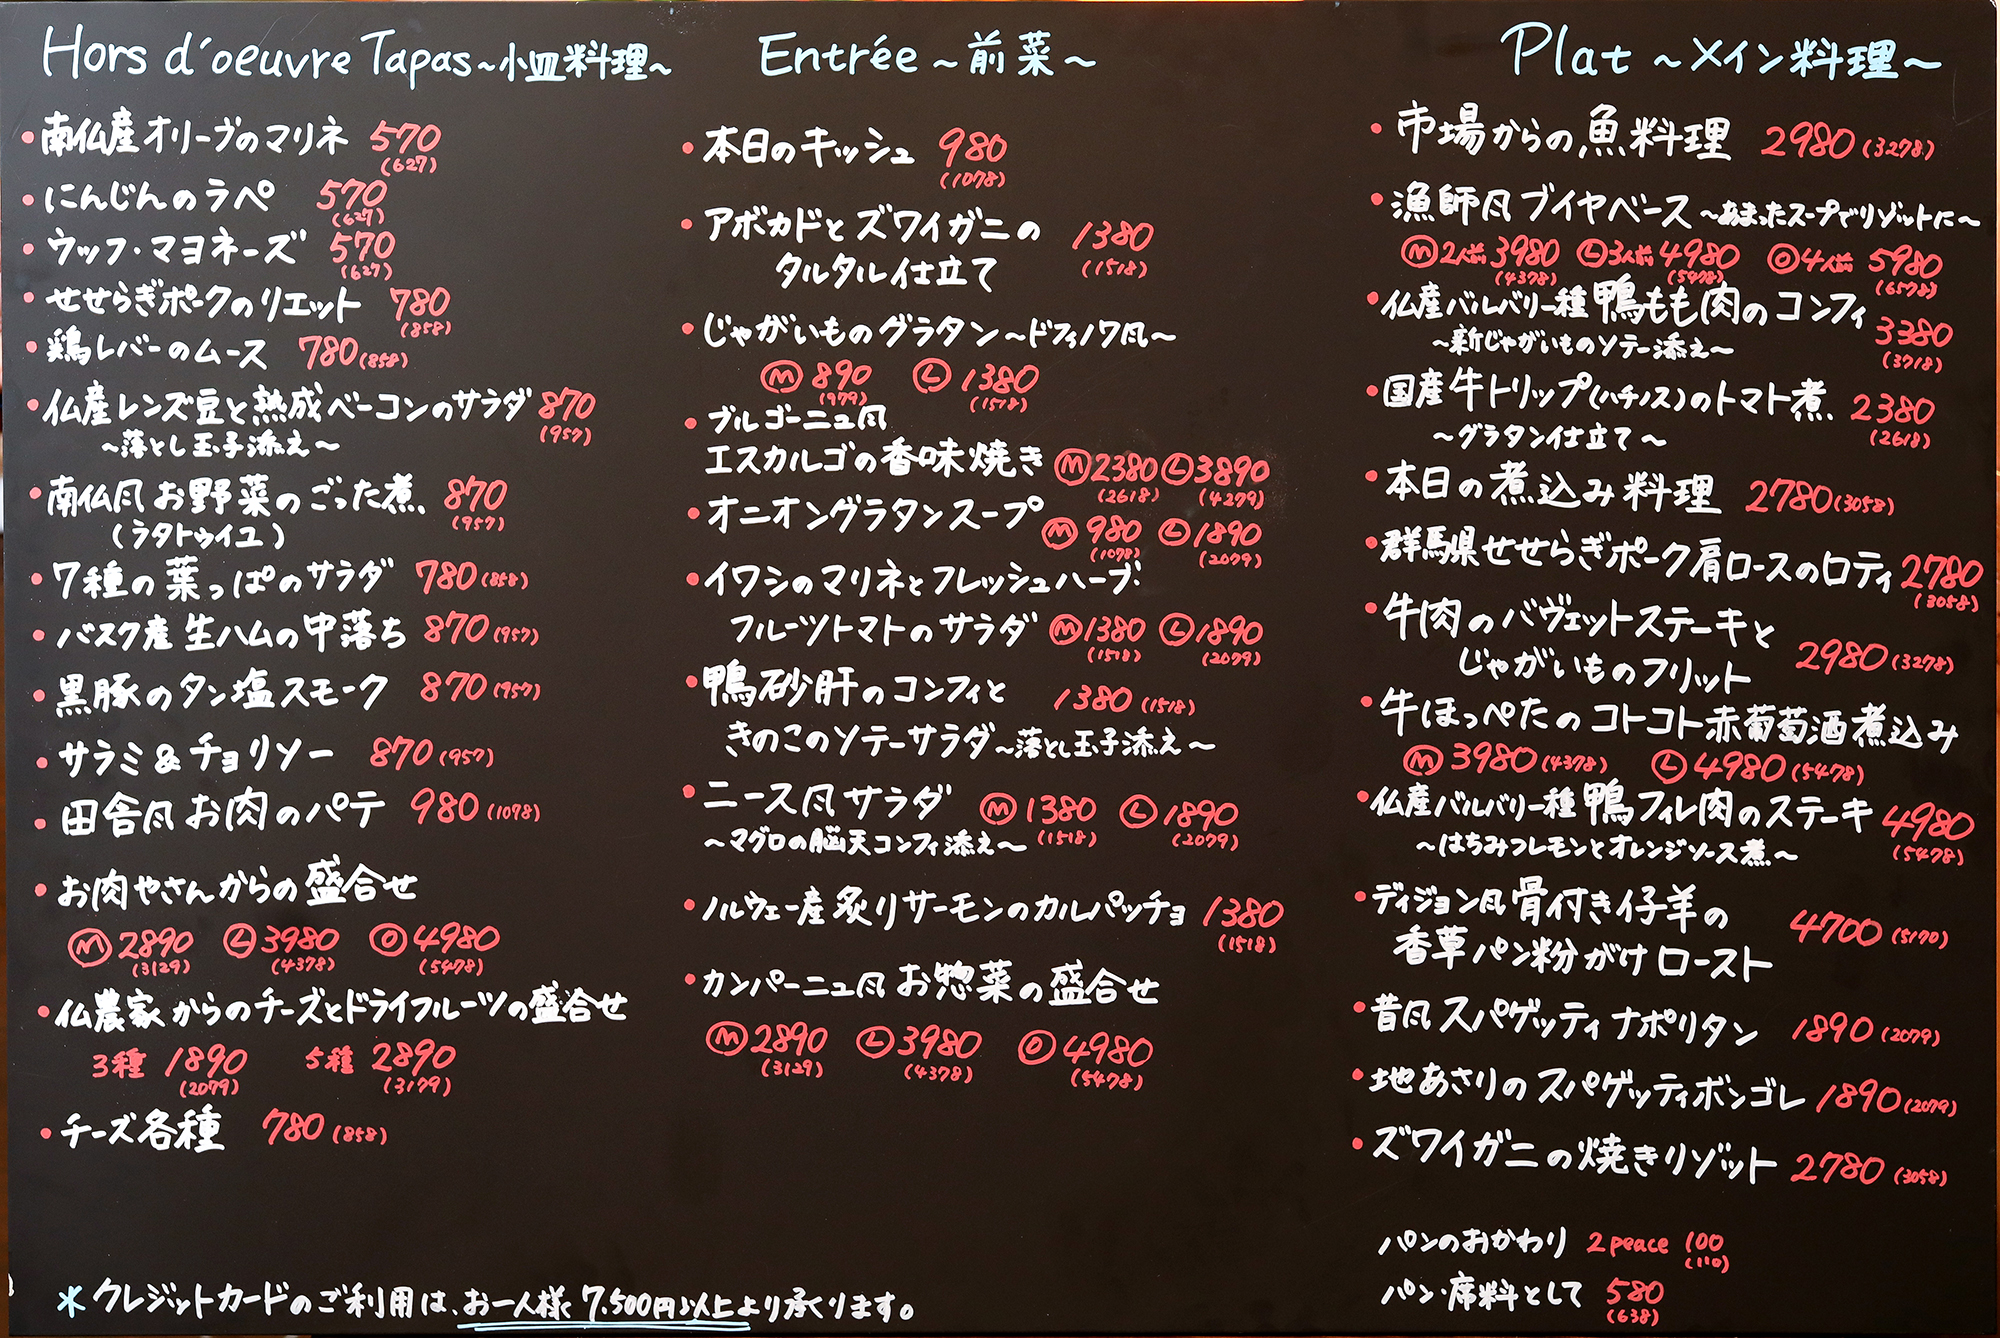 Hors d'oeuvre Tapas～小皿料理～
・南仏産オリーブのマリネ 570
(627)
・にんじんのラペ 570
(627)
・ウッフ・マヨネーズ 570
(627)
・せせらぎポークのリエット 780
(858)
・鶏レバーのムース 780(858)
・仏産レンズ豆と熟成ベーコンのサラダ 870
～落とし玉子添え～ (957)
・南仏風お野菜のごった煮 870
(ラタトゥイユ) (957)
・7種の葉っぱのサラダ 780(858)
・バスク産生ハムの中落ち 870(957)
・黒豚のタン塩スモーク 870(957)
・サラミ&チョリソー 870(957)
・田舎風お肉のパテ 980(1098)
・お肉やさんからの盛合せ
Ⓜ2890 Ⓛ3980 Ⓞ4980
(3129) (4378) (5478)
・仏農家からのチーズとドライフルーツの盛合せ
3種 1890 5種 2890
(2079) (3179)
・チーズ各種 780(858)
＊クレジットカードのご利用は、お一人様 7,500円以上より承ります。
Entrée～前菜～
・本日のキッシュ 980
(1078)
・アボカドとズワイガニの 1380
タルタル仕立て (1518)
・じゃがいものグラタン～ドフィノワ風～
Ⓜ890 Ⓛ1380
(979) (1518)
・ブルゴーニュ風
エスカルゴの香味焼き Ⓜ2380 Ⓛ3890
(2618) (4279)
・オニオングラタンスープ Ⓜ980 Ⓛ1890
(1078) (2079)
・イワシのマリネとフレッシュハーブ
フルーツトマトのサラダ Ⓜ1380 Ⓛ1890
(1518) (2079)
・鴨砂肝のコンフィと 1380(1518)
きのこのソテーサラダ～落とし玉子添え～
・ニース風サラダ Ⓜ1380 Ⓛ1890
～マグロの脳天コンフィ添え～ (1518) (2079)
・ノルウェー産炙りサーモンのカルパッチョ 1380
(1518)
・カンパーニュ風お惣菜の盛合せ
Ⓜ2890 Ⓛ3980 Ⓞ4980
(3129) (4378) (5478)
Plat～メイン料理～
・市場からの魚料理 2980(3278)
・漁師風ブイヤベース～あまったスープでリゾットに～
Ⓜ2人前3980 Ⓛ3人前4980 Ⓞ4人前 5980
(4378) (5478) (6578)
・仏産バルバリー種鴨もも肉のコンフィ 3380
～新じゃがいものソテー添え～ (3718)
・国産牛トリップ(ハチノス)のトマト煮 2380
～グラタン仕立て～ (2618)
・本日の煮込み料理 2780(3058)
・群馬県せせらぎポーク肩ロースのロティ 2780
(3058)
・牛肉のバヴェットステーキと 2980(3278)
じゃがいものフリット
・牛ほっぺたのコトコト赤葡萄酒煮込み
Ⓜ3980(4378) Ⓛ4980(5478)
・仏産バルバリー種鴨フィレ肉のステーキ 4980
～はちみつレモンとオレンジソース煮～ (5478)
・ディジョン風骨付き仔羊の 4700(5170)
香草パン粉がけロースト
・昔風スパゲッティナポリタン 1890(2079)
・地あさりのスパゲッティボンゴレ 1890(2079)
・ズワイガニの焼きリゾット 2780(3058)
パンのおかわり 2peace 100
(110)
パン・席料として 580
(638)